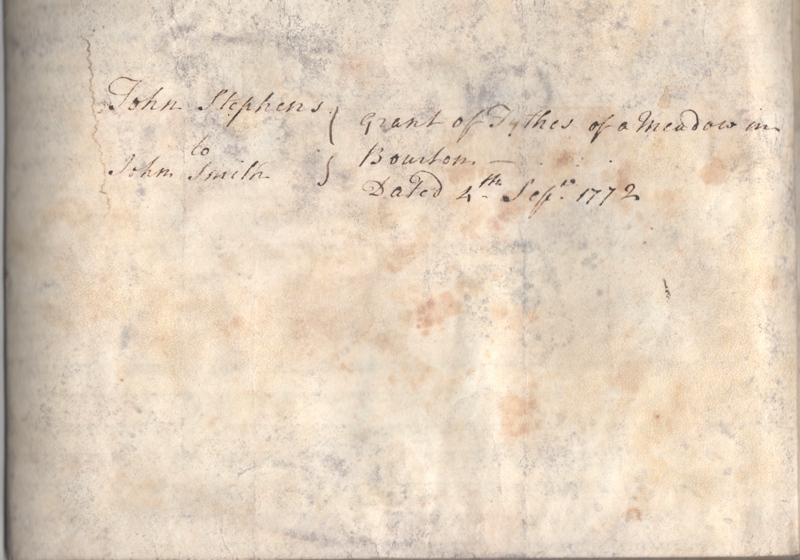 John Stephens
to
John Smith
Grant of Tythes of a Meadow in
Bourton —
Dated 4th Sepr. 1772